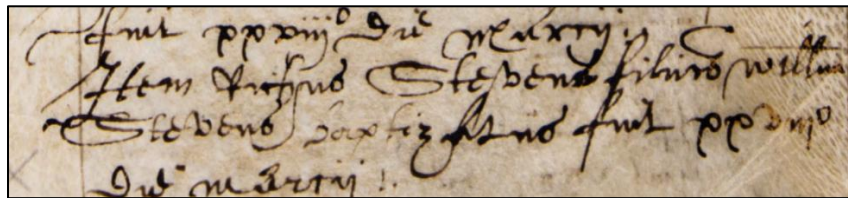 fuit xxviijo die marcij
Item Ricus Stevens filius willm
Stevens baptizatus fuit xxviijo
die marcij